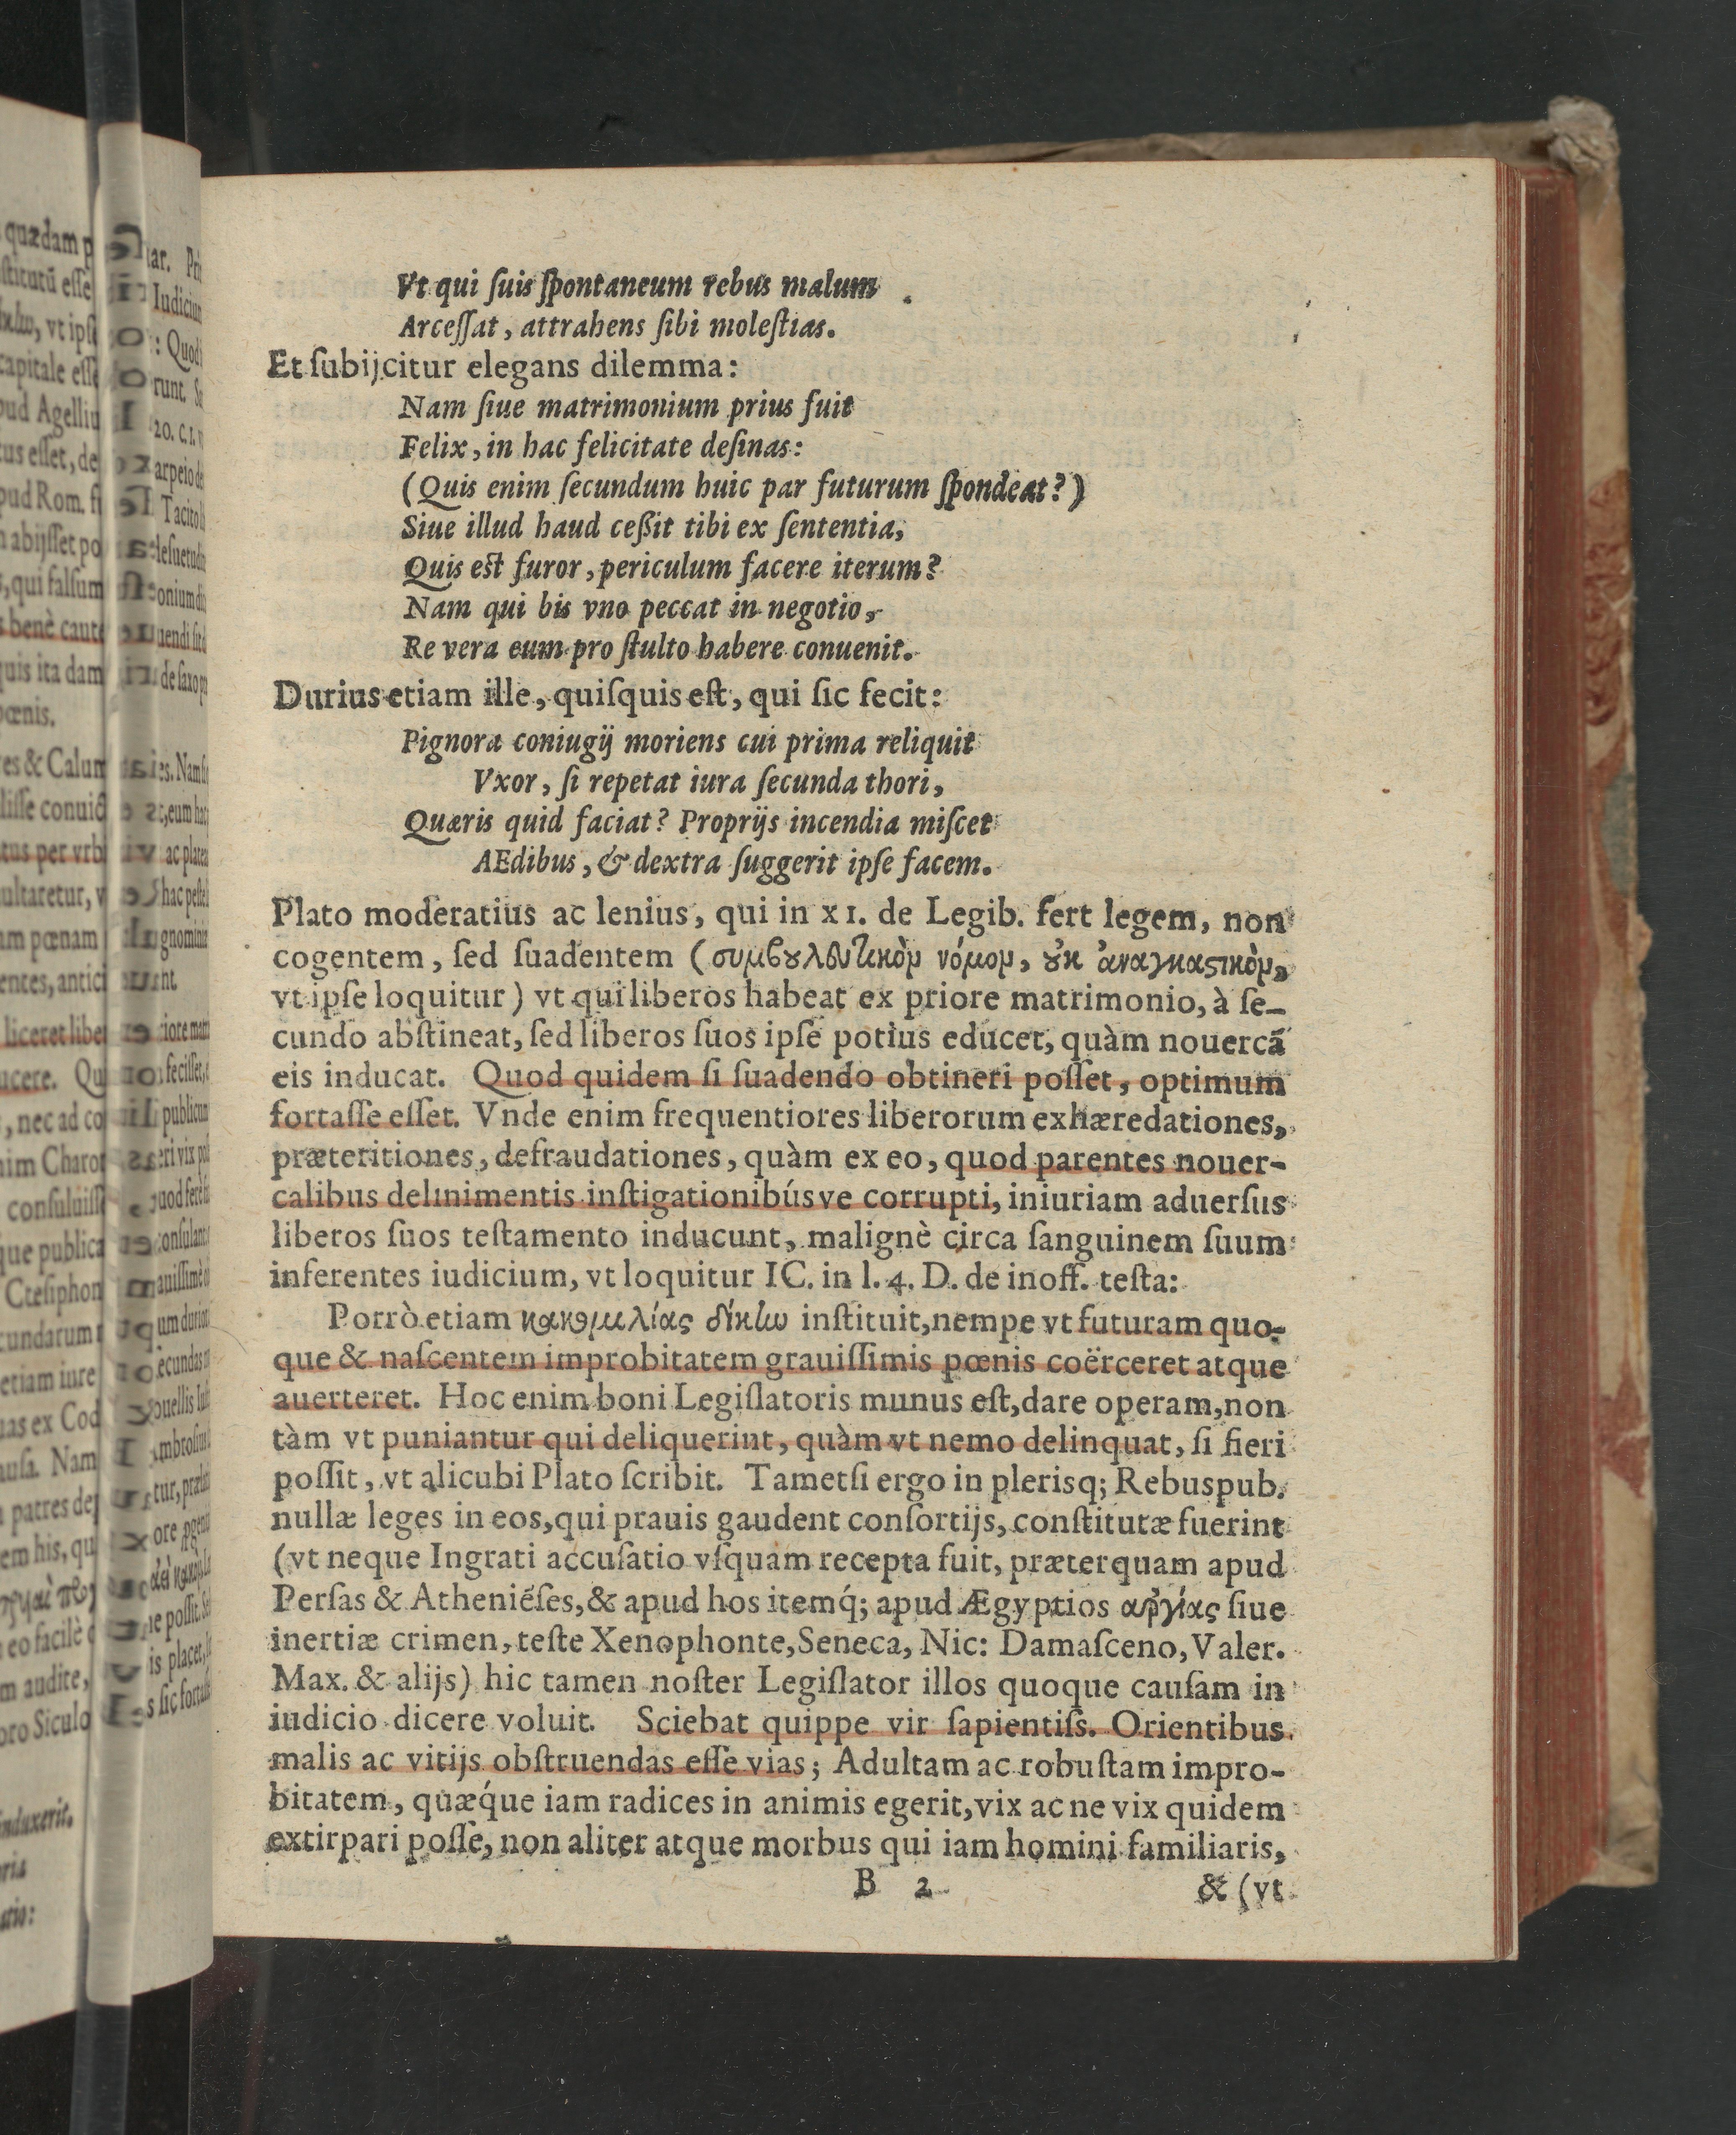 Vt qui ſuis ſpontaneum rebus malum
Arceſſat, attrahens ſibi moleſtias.
Et ſubijcitur elegans dilemma:
Nam ſiue matrimonium prius fuit
Felix, in hac felicitate deſinas:
(Quis enim ſecundum huic par futurum ſpondeat?)
Siue illud haud ceßit tibi ex ſententia,
Quis eſt furor, periculum facere iterum?
Nam qui bis vno peccat in negotio,
Re vera eum pro ſtulto habere conuenit.
Durius etiam ille, quiſquis eſt, qui ſic fecit:
Pignora coniugij moriens cui prima reliquit
Vxor, ſi repetat iura ſecunda thori,
Quæris quid faciat? Proprijs incendia miſcet
AEdibus, & dextra ſuggerit ipſe facem.
Plato moderatius ac lenius, qui in XI. de Legib. fert legem, non
cogentem, ſed ſuadentem (συμβουλευτικὸν νόμον, οὐκ ἀναγκαστικὸν,
vt ipſe loquitur) vt qui liberos habeat ex priore matrimonio, à ſe-
cundo abſtineat, ſed liberos ſuos ipſe potius educet, quàm nouercã
eis inducat. Quod quidem ſi ſuadendo obtineri poſſet, optimum
fortaſſe eſſet. Vnde enim frequentiores liberorum exhæredationes,
præteritiones, defraudationes, quàm ex eo, quod parentes nouer-
calibus delinimentis inſtigationibúsve corrupti, iniuriam aduerſus
liberos ſuos teſtamento inducunt, malignè circa ſanguinem ſuum
inferentes iudicium, vt loquitur IC. in l. 4. D. de inoff. teſta:
Porrò etiam κακομιλίας δίκην inſtituit, nempe vt futuram quo-
que & naſcentem improbitatem grauiſſimis pœnis coërceret atque
auerteret. Hoc enim boni Legiſlatoris munus eſt, dare operam, non
tàm vt puniantur qui deliquerint, quàm vt nemo delinquat, ſi fieri
poſſit, vt alicubi Plato ſcribit. Tametſi ergo in plerisq; Rebuspub.
nullæ leges in eos, qui prauis gaudent conſortijs, conſtitutæ fuerint
(vt neque Ingrati accuſatio vſquam recepta fuit, præterquam apud
Perſas & Atheniẽſes, & apud hos itemq́; apud Ægyptios ἀργίας ſiue
inertiæ crimen, teſte Xenophonte, Seneca, Nic: Damaſceno, Valer.
Max. & alijs) hic tamen noſter Legiſlator illos quoque cauſam in
iudicio dicere voluit. Sciebat quippe vir ſapientiſs. Orientibus
malis ac vitijs obſtruendas eſſe vias; Adultam ac robuſtam impro-
bitatem, quæq́ue iam radices in animis egerit, vix ac ne vix quidem
extirpari poſſe, non aliter atque morbus qui iam homini familiaris,
B 2
& (vt